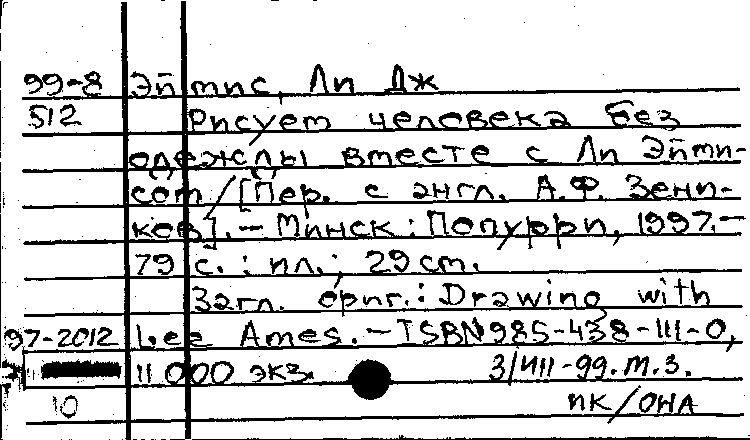 99-8 Эймис, Ли Дж
512 Рисуем человека без
одежды вместе с Ли Эйми-
сом/[Пер. с англ. А.Ф. Зени-
ков].- Минск: Попурри, 1997.-
79 с.: ил.; 29 cm.
Загл. ориг.: Drawing with
97-2012 Lee Ames.-ISBN 985-438-111-0,
11 000 экз. 3/VIII-99.т.з.
10 ПК/ОНЛ